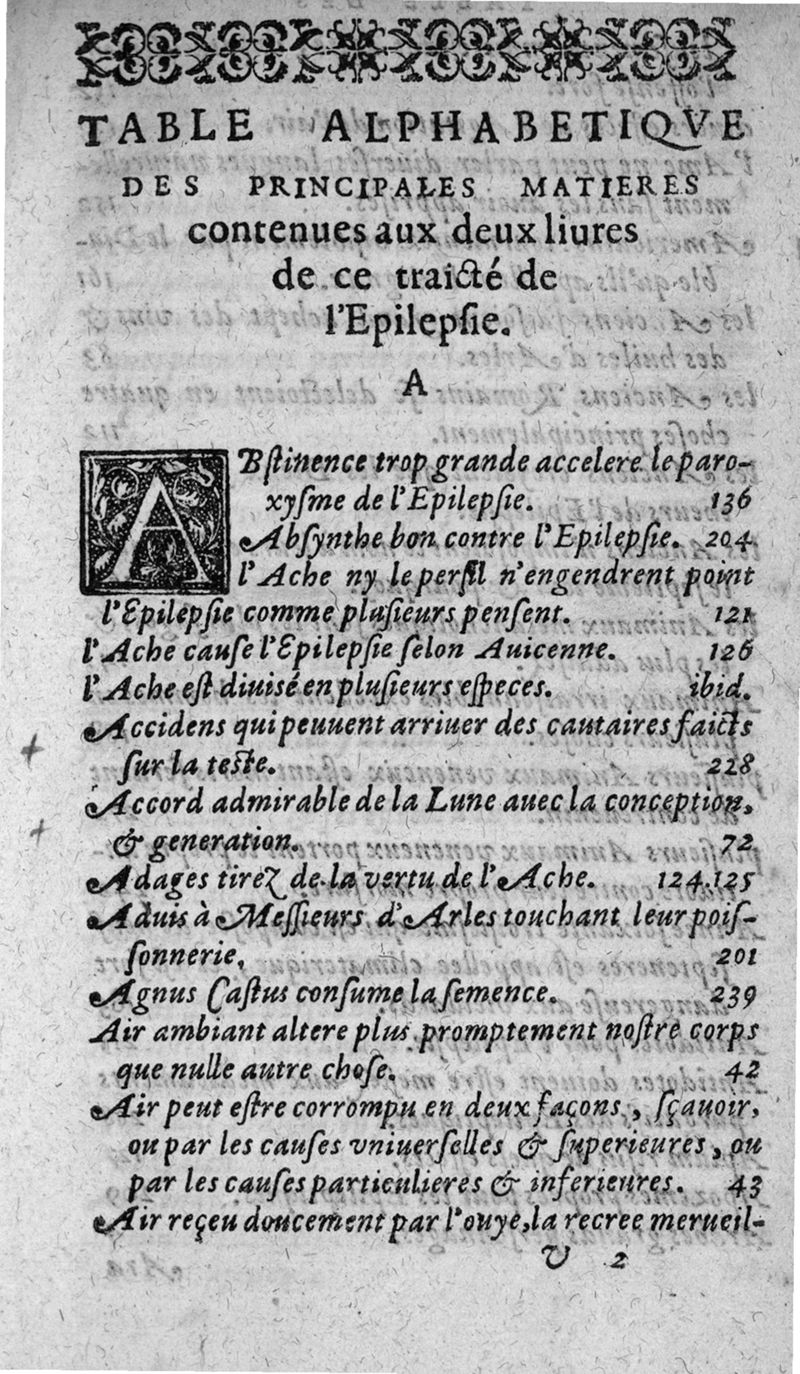 TABLE ALPHABETIQVE
DES PRINCIPALES MATIERES
contenues aux deux liures
de ce traicté de
l'Epilepſie.
A
ABſtinence trop grande accelere le paro-
xyſme de l'Epilepſie. 136
Abſynthe bon contre l'Epilepſie. 204.
l'Ache ny le perſil n'engendrent point
l'Epilepſie comme pluſieurs penſent. 121
l'Ache cauſe l'Epilepſie ſelon Auicenne. 126
l'Ache eſt diuisé en pluſieurs eſpeces. ibid.
Accidens qui peuuent arriuer des cautaires faicts
ſur la teſte. 228
Accord admirable de la Lune auec la conception,
& generation. 72
Adages tirez de la vertu de l'Ache. 124.125
Aduis à Meſſieurs d'Arles touchant leur poiſ-
ſonnerie, 201
Agnus Caſtus conſume la ſemence. 239
Air ambiant altere plus promptement noſtre corps
que nulle autre choſe. 42
Air peut eſtre corrompu en deux façons, ſçauoir,
ou par les cauſes vniuerſelles & ſuperieures, ou
par les cauſes particulieres & inferieures. 43
Air reçeu doucement par l'ouye, la recree merueil-
V 2